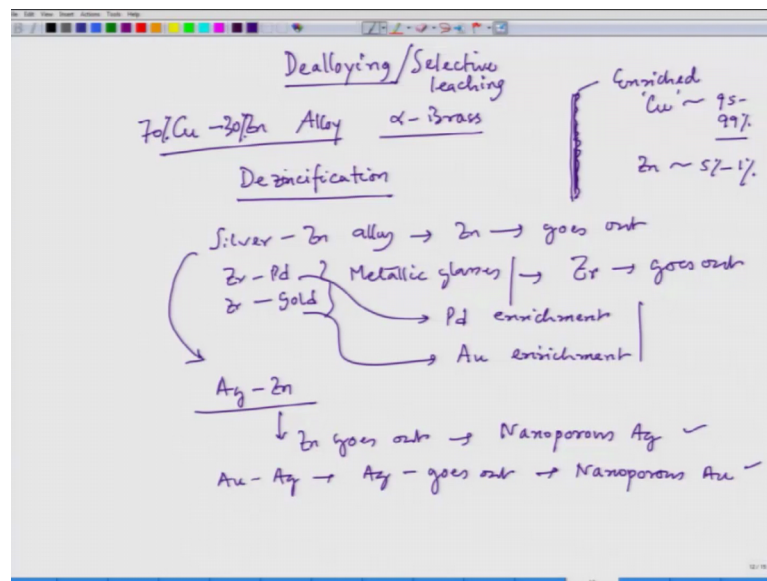 File Edit View Insert Actions Tools Help
Dealloying/Selective
leaching
70%Cu-30%Zn Alloy α-Brass
Enriched
'Cu' ~ 95-
99%
Zn ~ 5%-1%
Dezincification
Silver-Zn alloy → Zn → goes out
Zr-Pd } Metallic glasses → Zr → goes out
Zr-Gold
→ Pd enrichment
→ Au enrichment
Ag-Zn
↓ Zn goes out → Nanoporous Ag ✓
Au-Ag → Ag-goes out → Nanoporous Au ✓